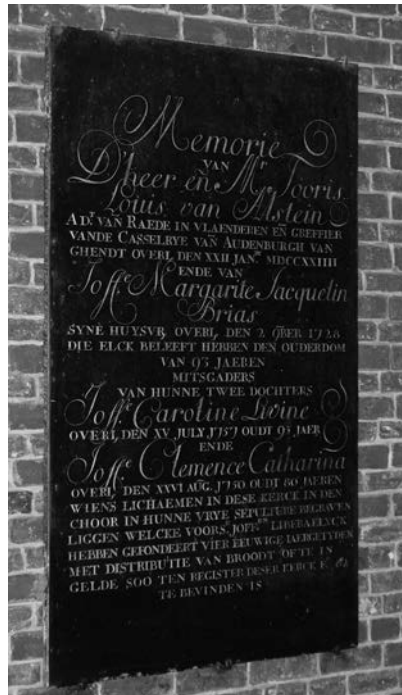 Memorie
VAN
D'heer en Mr Jooris
Louis van Alstein
ADT. VAN RAEDE IN VLAENDEREN EN GREFFIER
VANDE CASSELRYE VAN AUDENBURGH VAN
GHENDT OVERL. DEN XXII JANry MDCCXXIIII
ENDE VAN
Joffe Margarite Jacquelin
Brias
SYNE HUYSVR. OVERL. DEN 2. 9BER 1728
DIE ELCK BELEEFT HEBBEN DEN OUDERDOM
VAN 93 JAEREN
MITSGADERS
VAN HUNNE TWEE DOCHTERS
Joffe Caroline Livine
OVERL. DEN XV JULY J757 OUDT 93 JAER
ENDE
Joffe Clemence Catharina
OVERL. DEN XXVI AUG. J750 OUDT 80 JAEREN
WIENS LICHAEMEN IN DESE KERCK IN DEN
CHOOR IN HUNNE VRYE SEPULTURE BEGRAVEN
LIGGEN WELCKE VOORS. JOFFen LIBERAELYCK
HEBBEN GEFONDEERT VIER EEUWIGE JAERGETYDEN
MET DISTRIBUTIE VAN BROODT OFTE IN
GELDE SOO TEN REGISTER DESER KERCK
TE BEVINDEN IS